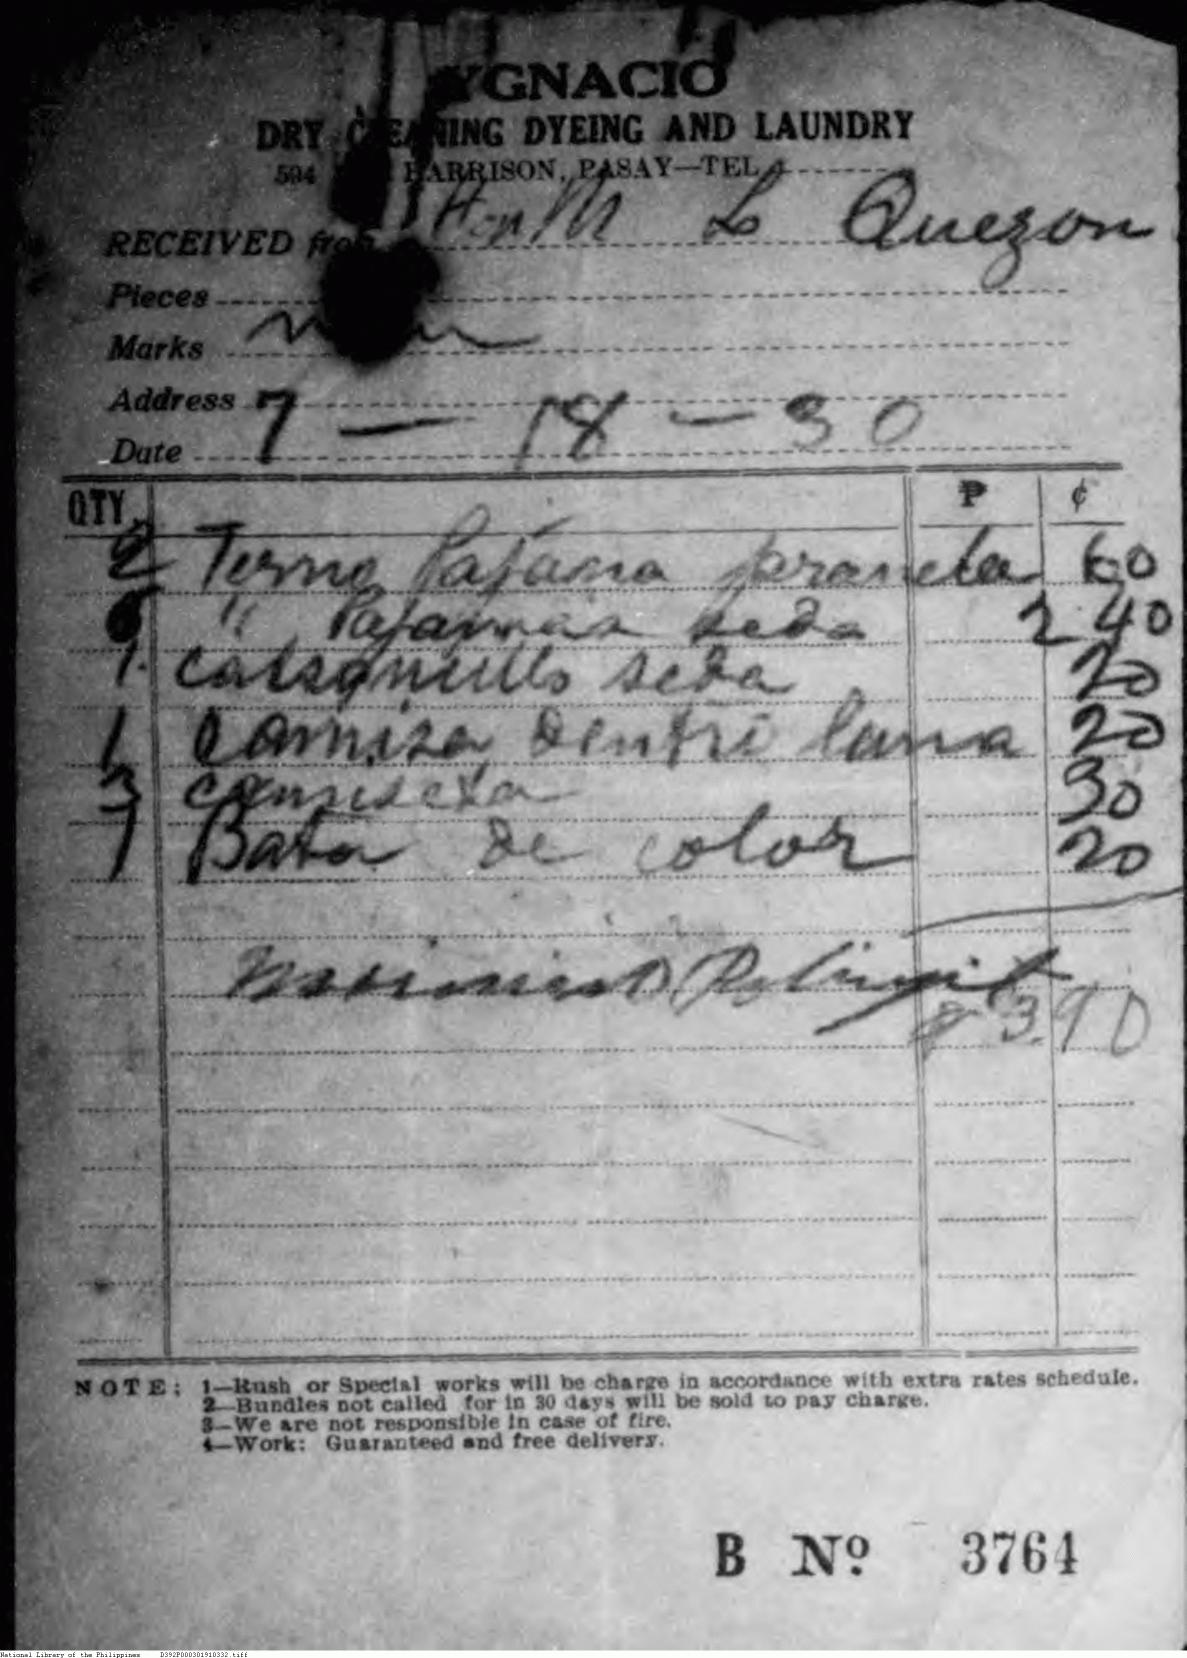 YGNACIO
DRY CLEANING DYEING AND LAUNDRY
594 HARRISON, PASAY—TEL
RECEIVED from Hon M L Quezon
Pieces
Marks
Address
Date 7 - 18 - 30
QTY ₱ ¢
2 Terno Pajama franela 60
" Pajamas seda 2 40
1 calsoncillo seda 20
1 Camisa dentri lana 20
3 camiseta 30
1 Bata de color 20
₱ 3.90
NOTE: 1—Rush or Special works will be charge in accordance with extra rates schedule.
2—Bundles not called for in 30 days will be sold to pay charge.
3—We are not responsible in case of fire.
4—Work: Guaranteed and free delivery.
B Nº 3764
National Library of the Philippines D392P000301910332.tiff